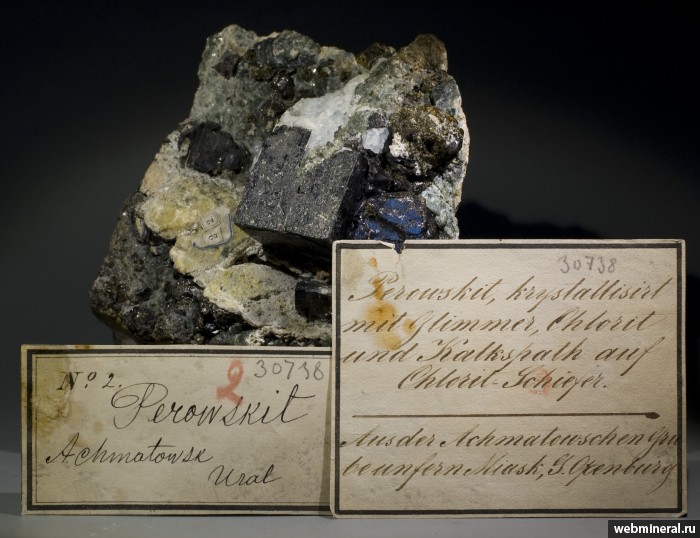 30738
Perowskit, krystallisirt
mit Glimmer, Chlorit
und Kalkspath auf
Chlorit-Schiefer.
Aus der Achmatowschen Gru
be unfern Miask, G. Orenburg
No. 2.
2
30738
Perowskit
Achmatowsk
Ural
webmineral.ru